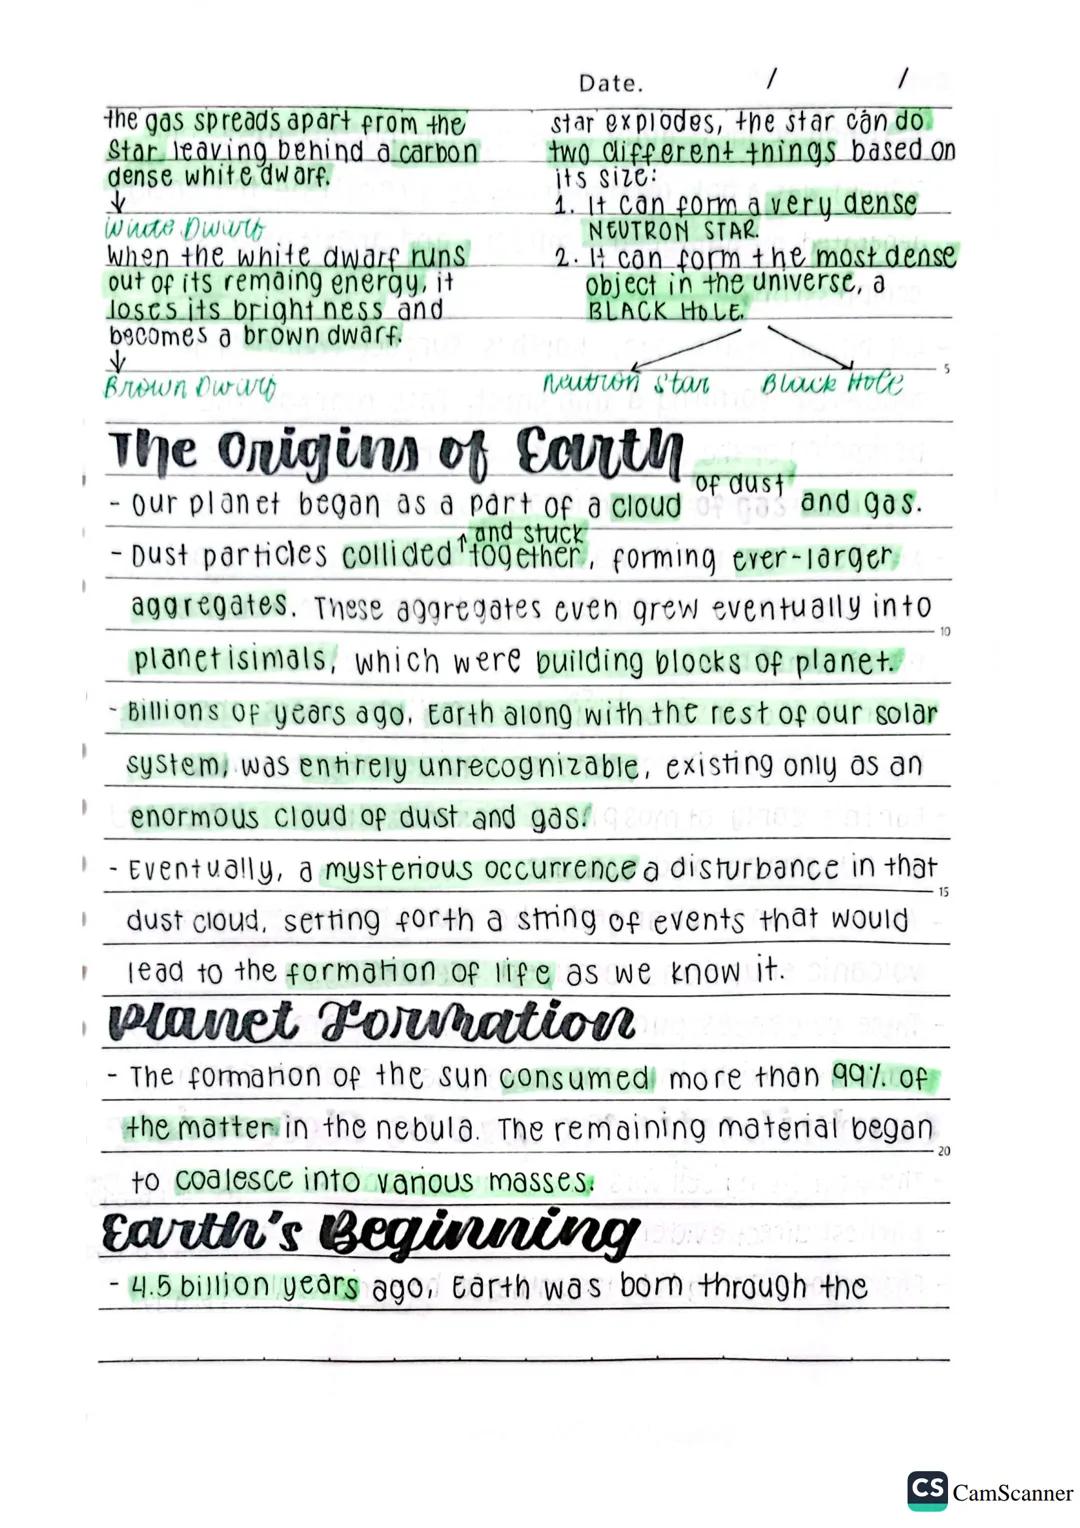 Date. / /
the gas spreads apart from the
star leaving behind a carbon
dense white dwarf.
↓
White Dwarf
When the white dwarf runs
out of its remaing energy, it
loses its brightness and
becomes a brown dwarf.
↓
Brown Dwarf
star explodes, the star can do
two different things based on
its size:
1. It can form a very dense
NEUTRON STAR.
2. It can form the most dense
object in the universe, a
BLACK HOLE.
5
Neutron Star Black Hole
The Origins of Earth
- Our planet began as a part of a cloud of dust and gas.
- Dust particles collided ↑and stuck together, forming ever-larger
aggregates. These aggregates even grew eventually into
10
planetisimals, which were building blocks of planet.
- Billions of years ago, Earth along with the rest of our solar
system, was entirely unrecognizable, existing only as an
enormous cloud of dust and gas.
- Eventually, a mysterious occurrence a disturbance in that
15
dust cloud, setting forth a string of events that would
lead to the formation of life as we know it.
Planet Formation
- The formation of the sun consumed more than 99% of
the matter in the nebula. The remaining material began
20
to coalesce into various masses.
Earth's Beginning
- 4.5 billion years ago, Earth was born through the
CS CamScanner